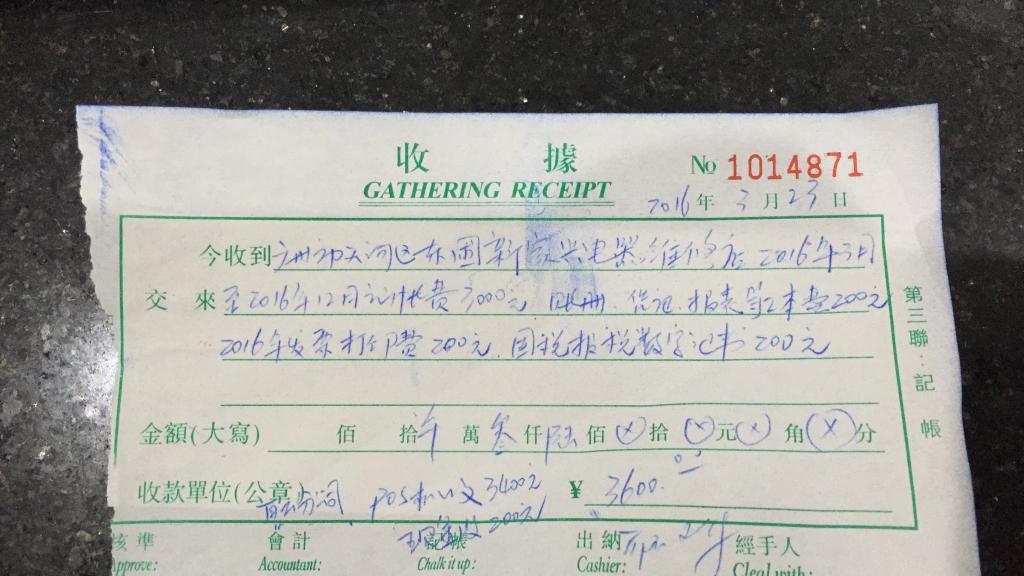 收 據
GATHERING RECEIPT
No 1014871
2016年 3月 23日
今收到 广州市天河区东圃新 电器维修店 2016年3月
交 來 至2016年12月 费3000元 账册、 、报表等工本费200元
2016年发票打印费200元、国税报税数字证书200元
金額(大寫) 佰 拾 萬 叁仟 陆佰 ⊗拾 ⊗元 ⊗角 ⊗分
收款單位(公章) POS机 3400元 ¥ 3600.00
200元
第三聯:記帳
核準 會計 記帳 出納 經手人
Approve: Accountant: Chalk it up: Cashier: Cleal with: